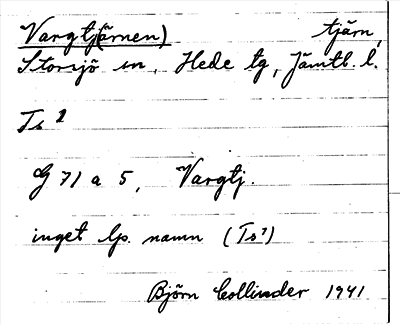 Vargtj(ärnen) tjärn,
Storsjö sn, Hede tg, Jämtl. l.
Ts²
G 71 a 5, Vargtj.
inget lp. namn (Ts²)
Björn Collinder 1941